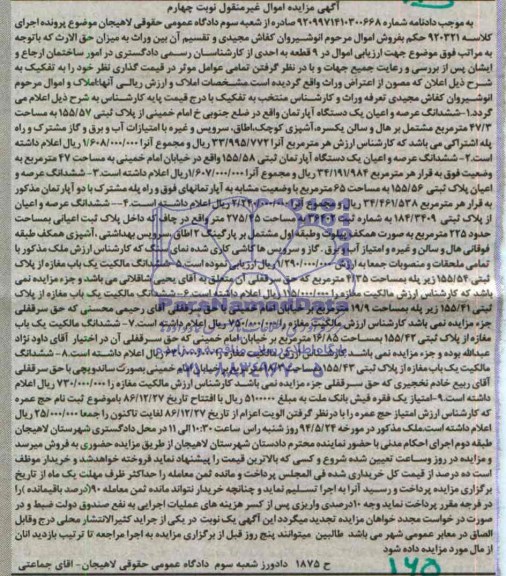 آگهی مزایده اموال غیرمنقول نوبت چهارم
به موجب دادنامه شماره ۹۲۰۹۹۷۱۴۱۰۳۰۰۶۶۸ صادره از شعبه سوم دادگاه عمومی حقوقی لاهیجان موضوع پرونده اجرای
کلاسه ۹۲۰۳۲۱ حکم بفروش اموال مرحوم انوشیروان کفاش مجیدی و تقسیم آن بین وراث به میزان حق الارث که باتوجه
به مراتب فوق موضوع جهت ارزیابی اموال در ۹ قطعه به احدی از کارشناسان رسمی دادگستری در امور ساختمان ارجاع و
ایشان پس از بررسی و رعایت جمیع جهات و با در نظر گرفتن تمامی عوامل موثر در قیمت گذاری نظر خود را به تفکیک به
شرح ذیل اعلان که مصون از اعتراض وراث واقع گردیده است مشخصات املاک و ارزش ریالی آنها:املاک و اموال مرحوم
انوشیروان کفاش مجیدی تعرفه وراث و کارشناس منتخب به تفکیک با درج قیمت پایه کارشناس به شرح ذیل اعلام می
گردد.۱-ششدانگ عرصه و اعیان یک دستگاه آپارتمان واقع در ضلع جنوبی خ امام خمینی از پلاک ثبتی ۱۵۵/۵۷ به مساحت
۴۷/۳ مترمربع مشتمل بر هال و سالن یکسره،آشپزی کوچک،اطاق، سرویس و غیره با امتیازات آب و برق و گاز مشترک و راه
پله اشتراکی می باشد که کارشناس ارزش هر مترمربع آنرا ۳۳/۹۹۵/۷۷۲ ریال و مجموع آنرا ۱/۶۰۸/۰۰۰/۰۰۰ ریال اعلام داشته
است.۲- ششدانگ عرصه و اعیان یک دستگاه آپارتمان ثبتی ۱۵۵/۵۸ واقع در خیابان امام خمینی به مساحت ۴۷ مترمربع به
وضعیت فوق به قرار هر مترمربع ۳۴/۱۹۱/۹۸۴ ریال و مجموع آنرا ۱/۶۰۷/۰۰۰/۰۰۰ ریال اعلام داشته است.۳- ششدانگ عرصه و
اعیان پلاک ثبتی ۱۵۵/۵۶ به مساحت ۶۵ مترمربع با وضعیت مشابه به آپارتمانهای فوق و راه پله مشترک با دو آپارتمان مذکور
به قرار هر مترمربع ۳۴/۴۶۱/۵۳۸ ریال و مجموع آنرا ۲/۲۴۰/۰۰۰/۰۰۰ ریال اعلام داشته است.۴- ششدانگ عرصه و اعیان
از پلاک ثبتی ۱۸۴/۳۴۰۹ به شماره ثبت مساحت ۲۷۵/۲۵ متر واقع در چافچاه داخل پلاک ثبت اعیانی بمساحت
حدود ۲۲۵ مترمربع به صورت همکف پیلوت وطبقه اول مشتمل بر پارکینگ ۲ اطاق،سرویس بهداشتی ،آشپزی همکف طبقه
فوقانی هال و سالن و غیره و امتیاز آب و برق ، گاز و سرویس ها کاشی کاری شده نمای سنگ که کارشناس ارزش ملک مذکور با
تمامی ملحقات و منصوبات جمعا به ارزش ۱/۲۹۰/۰۰۰/۰۰۰ ریال ارزیابی نموده است.۵- ششدانگ مالکیت یک باب مغازه از پلاک
ثبتی ۱۵۵/۵۴ زیر پله بمساحت ۴/۳۵ مترمربع که حق سرقفلی آن متعلق به آقای یحیی شاقلانی می باشد و جزء مزایده نمی
باشد که کارشناس ارزش مالکیت مغازه را ۱۷۵/۰۰۰/۰۰۰ ریال اعلام داشته است.۶- ششدانگ مالکیت یک باب مغازه از پلاک
ثبتی ۱۵۵/۴۱ زیر پله بمساحت ۱۹/۹ مترمربع در خیابان امام خمینی با حق سرقفلی آقای رحیمی محسنی که حق سرقفلی
جزء مزایده نمی باشد کارشناس ارزش مالکیت مغازه را ۷۵۰/۰۰۰/۰۰۰ ریال اعلام داشته است.۷- ششدانگ مالکیت یک باب
مغازه از پلاک ثبتی ۱۵۵/۴۲ بمساحت ۱۶/۸۵ مترمربع در خیابان امام خمینی که حق سرقفلی آن در اختیار آقای داود نژاد
عبدالله بوده و جزء مزایده نمی باشد. کارشناس ارزش مالکیت مغازه را ریال اعلام داشته است.۸- ششدانگ
مالکیت یک باب مغازه از پلاک ثبتی ۱۵۵/۴۳ بمساحت مترمربع در خیابان امام خمینی بصورت ساندویچی با حق سرقفلی
آقای ربیع خادم نخجیری که حق سرقفلی جزء مزایده نمی باشد کارشناس ارزش مالکیت مغازه را ۷۳۰/۰۰۰/۰۰۰ ریال اعلام
داشته است.۹-امتیاز یک فقره فیش بانک ملت به مبلغ ۵۱۰۰۰۰۰ ریال با افتتاح تاریخ ۸۶/۱۲/۲۷ باموضوع ثبت نام حج عمره
که کارشناس ارزش امتیاز حج عمره را با درنظر گرفتن الویت اعزام از تاریخ ۸۶/۱۲/۲۷ لغایت تاکنون را جمعا ۲۵/۰۰۰/۰۰۰ ریال
اعلام داشته است.ملک مذکور در مورخه ۹۴/۵/۲۴ روز شنبه راس ساعت ۱۰:۳۰ الی ۱۱ در محل دادگستری شهرستان لاهیجان
طبقه دوم اجرای احکام مدنی با حضور نماینده محترم دادستان شهرستان لاهیجان از طریق مزایده حضوری به فروش میرسد
و مزایده در روز وساعت تعیین شده شروع و کسی که بالاترین قیمت را پیشنهاد نماید فروخته خواهدشد و خریدار موظف
است ده درصد از قیمت کل خریداری شده فی المجلس پرداخت و مانده ثمن معامله را حداکثر ظرف مهلت یک ماه از تاریخ
برگزاری مزایده پرداخت و رسید آنرا به اجرا تسلیم نماید و چنانچه خریدار نتواند مانده ثمن معامله ۹۰(درصد باقیمانده )را
در فرجه مقرر پرداخت نماید وجه ۱۰درصدی واریزی پس از کسر هزینه های عملیات اجرایی به نفع صندوق دولت ضبط و در
صورت در خواست مجدد خواهان مزایده تجدید میگردد این آگهی یک نوبت در یکی از جراید کثیرالانتشار محلی درج وقابل
الصاق در معابر عمومی شهر می باشد طالبین میتوانند پنج روز قبل از برگزاری مزایده به اجرا مراجعه تا ترتیب بازدید انان
از مال مورد مزایده داده شود
ح ۱۸۷۵ دادورز شعبه سوم دادگاه عمومی حقوقی لاهیجان- آقای جماعتی
۱۶۵
ParsNamadData